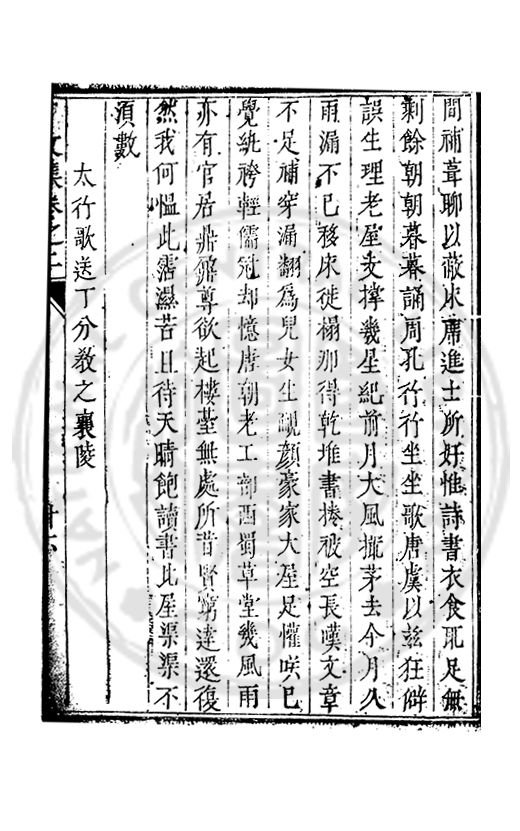 間補葺聊以蔽床席進士所好惟詩書衣食取足無
剩餘朝朝暮暮誦周孔行行坐坐歌唐虞以茲狂僻
誤生理老屋支撐幾星紀前月大風捲茅去今月久
雨漏不已移床徙榻那得乾堆書擁被空長嘆文章
不足補穿漏翻為兒女生靦顏豪家大屋足懽咲已
覺紈袴輕儒冠却憶唐朝老工部西蜀草堂幾風雨
亦有官居鼎鼐尊欲起樓臺無處所昔賢窮達還復
然我何慍此霑濕苦且待天晴飽讀書此屋渠渠不
須數
太行歌送丁分教之襄陵
文集卷之二
廿六